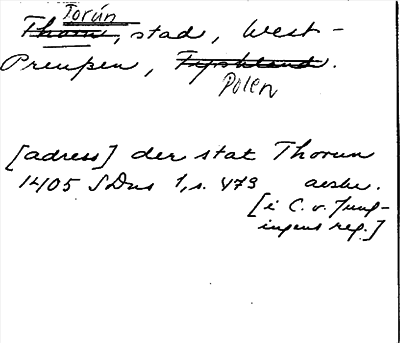 Torún
Thorn, stad, West-
Preuſsen, Tyskland.
Polen
[adress] der stat Thorun
1405 SDns 1, s. 479 aeshe.
[i C. v. Jung-
ingens reg.]